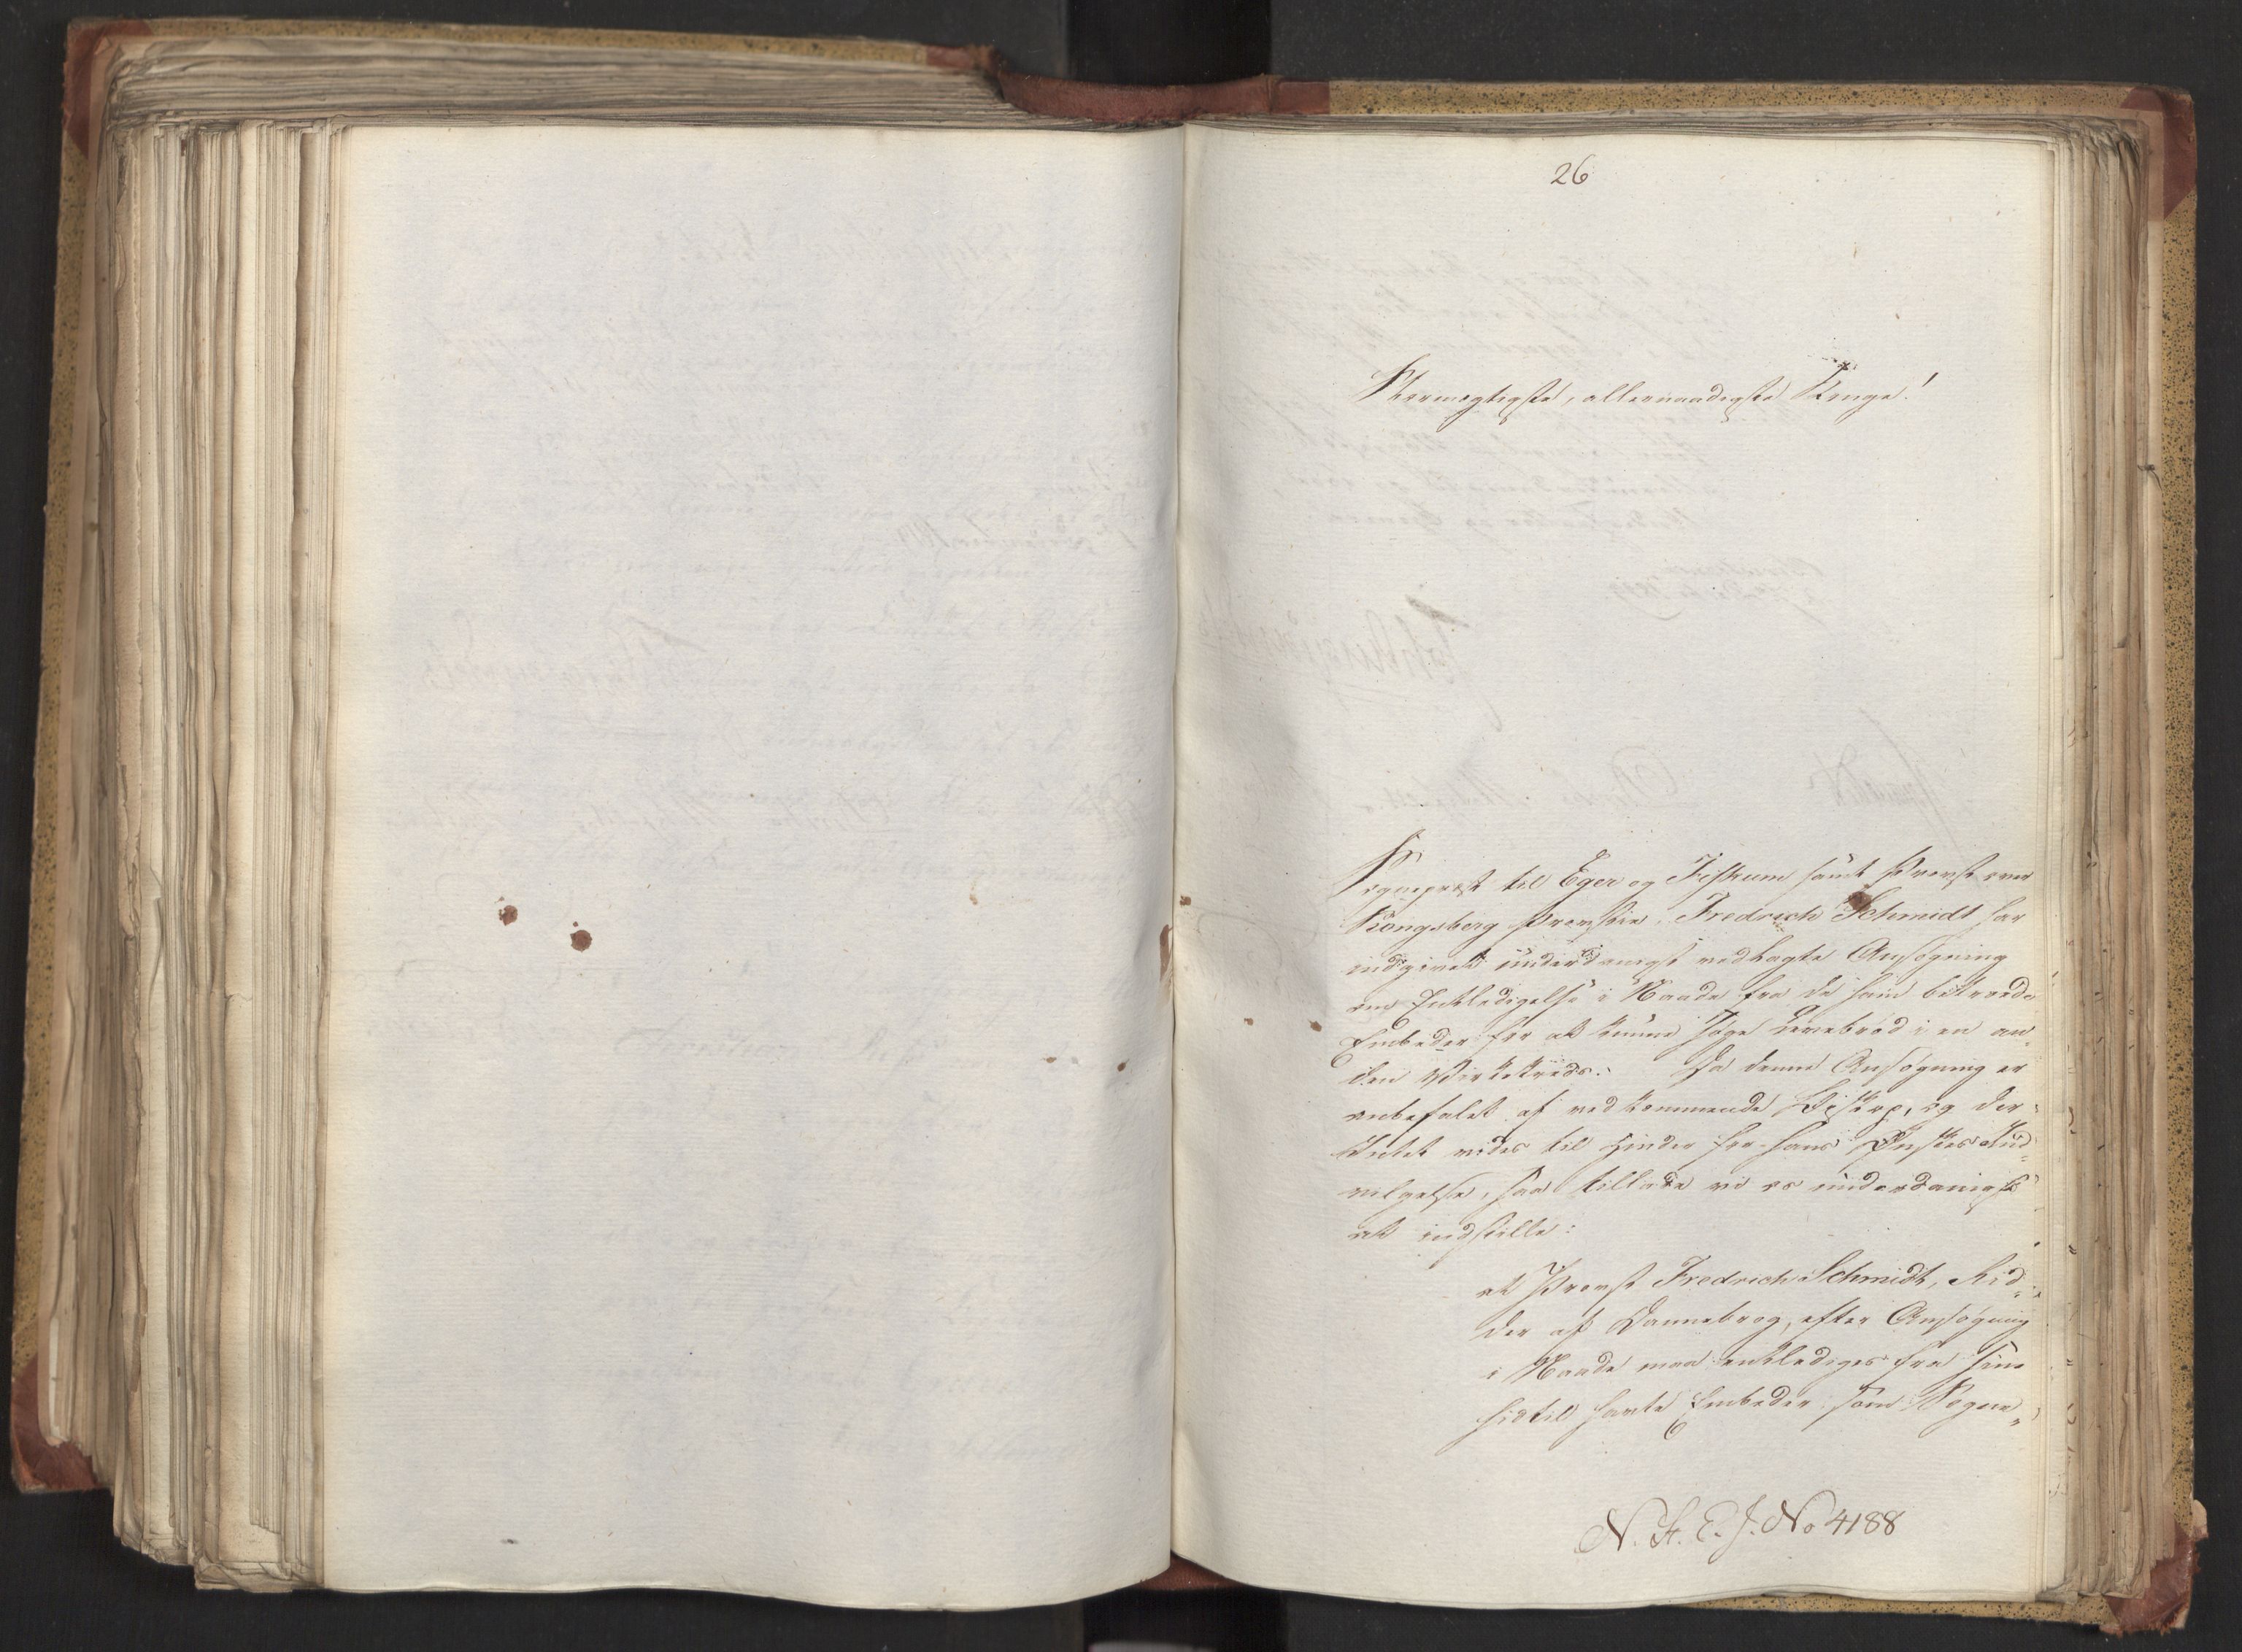 26
Stormægtigste, allernaadigste Konge!
Sognepræst til Eger og Fiskum samt Provst over
Kongsberg Provstie, Fredrich Schmidt har
indgivet underdanigst vedlagte Ansøgning
om Entledigelse i Naade fra de ham betroede
Embeder for at kunne søge Levebrød i en an„
den Virkekreds. Da denne Ansøgning er
anbefalet af vedkommende Biskop, og der
Intet vides til Hinder for hans Ønskes Ind„
vilgelse, saa tillade vi os underdanigst
at indstille:
at Provst Fredrich Schmidt, Rid„
der af Dannebrog, efter Ansøgning
i Naade maa entlediges fra sine
hidtil havte Embeder som Sogne„
N. St. E. J. No 4188